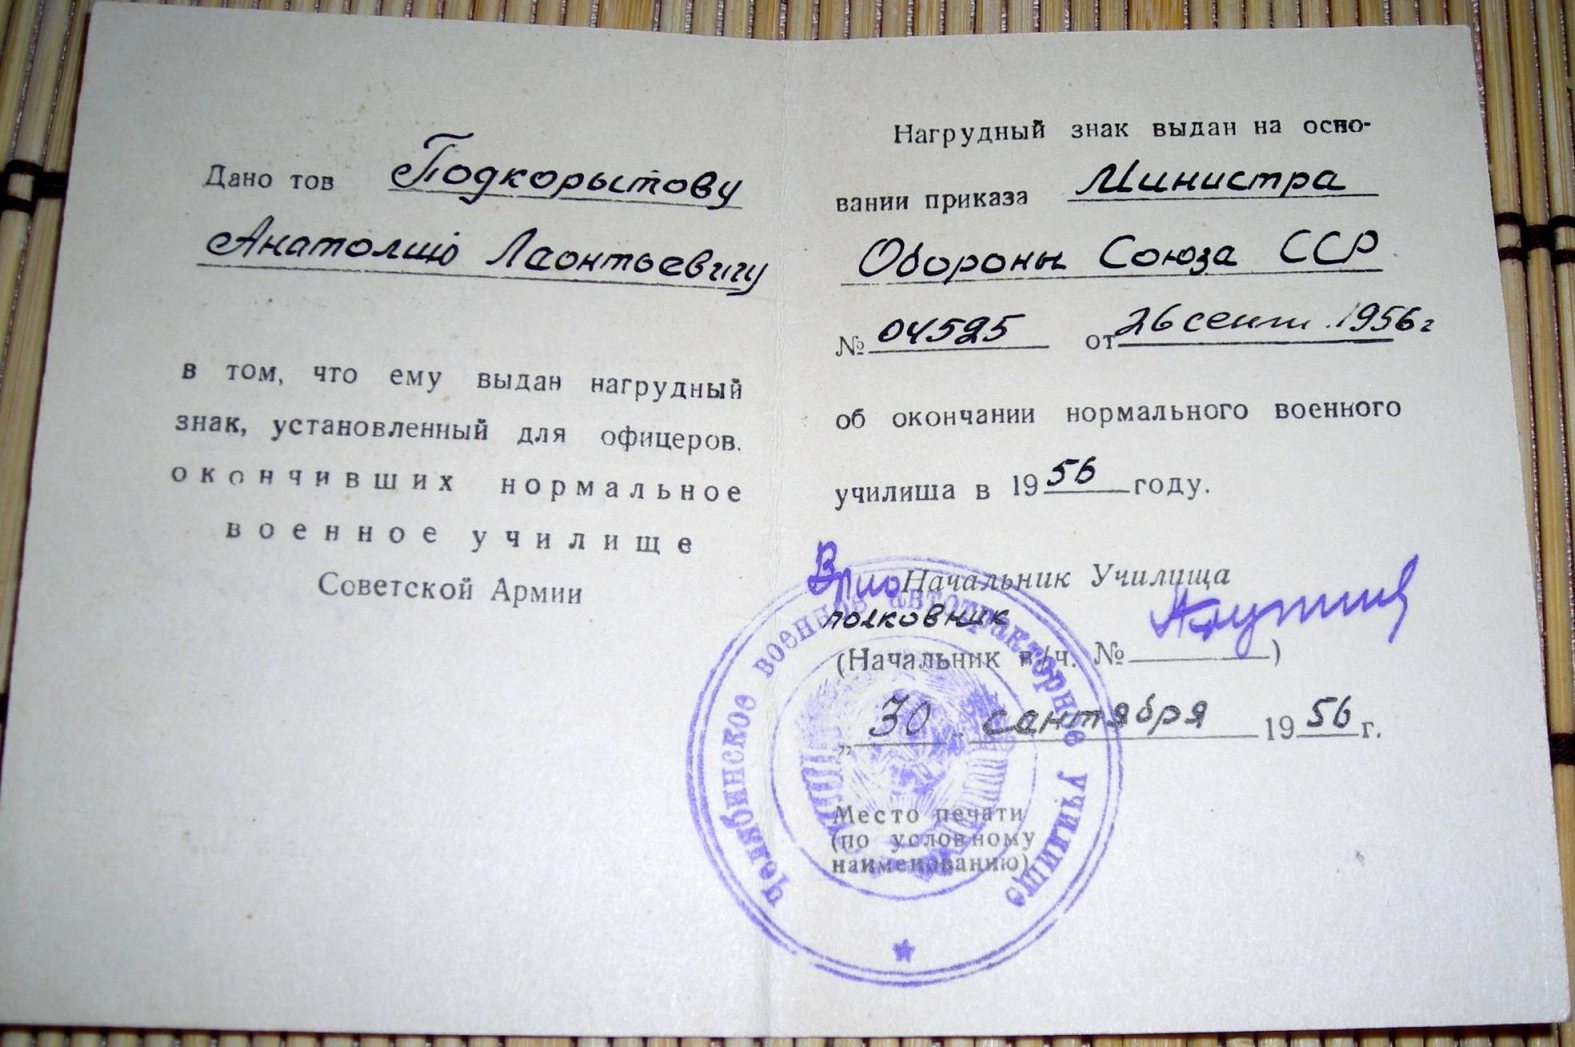 Дано тов Подкорытову
Анатолию Леонтьевичу
в том, что ему выдан нагрудный
знак, установленный для офицеров.
окончивших нормальное
военное училище
Советской Армии
Нагрудный знак выдан на осно-
вании приказа Министра
Обороны Союза ССР
№ 04525 от 26 сент. 1956 г
об окончании нормального военного
училиша в 1956 году.
Врио Начальник Училища
полковник
(Начальник в/ч. № )
„ 30 . сентября 1956 г.
Место печати
(по условному
наименованию)
Челябинское военное автотракторное училище